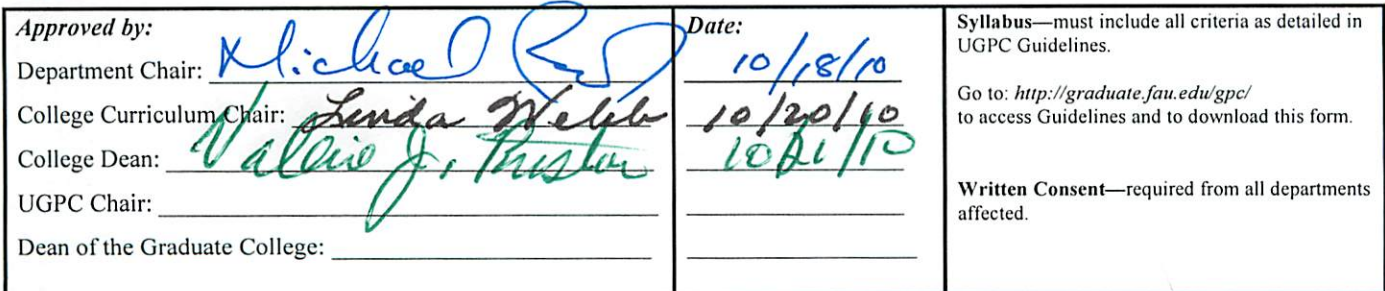 Approved by:
Department Chair: Michael
College Curriculum Chair: Linda Webb
College Dean: Valerie J. Bristor
UGPC Chair:
Dean of the Graduate College:
Date:
10/18/10
10/20/10
10/21/10
Syllabus—must include all criteria as detailed in
UGPC Guidelines.
Go to: http://graduate.fau.edu/gpc/
to access Guidelines and to download this form.
Written Consent—required from all departments
affected.